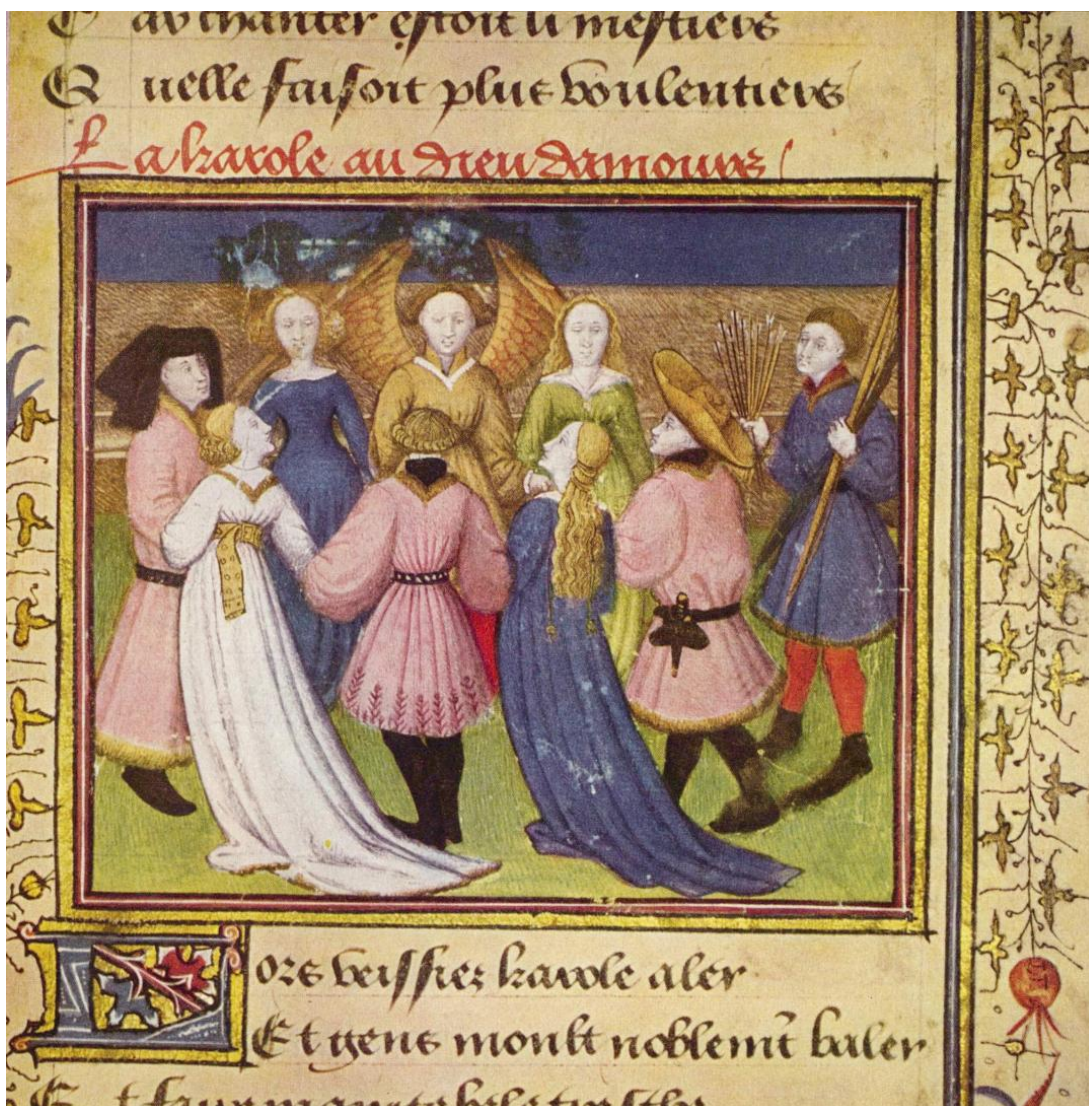 C au chanter estoit li mestiers
Q uelle faisoit plus voulentiers
La karole au dieu damours
Lors veissiez karole aler
Et gens moult noblemt baler
E t faire